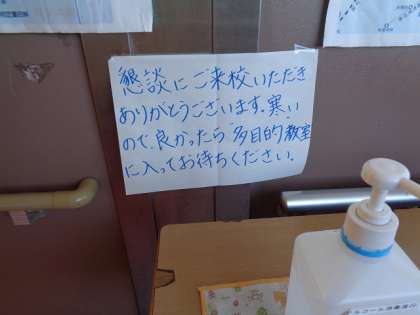 懇談にご来校いただき
ありがとうございます。寒い
ので、良かったら多目的教室
に入ってお待ちください。